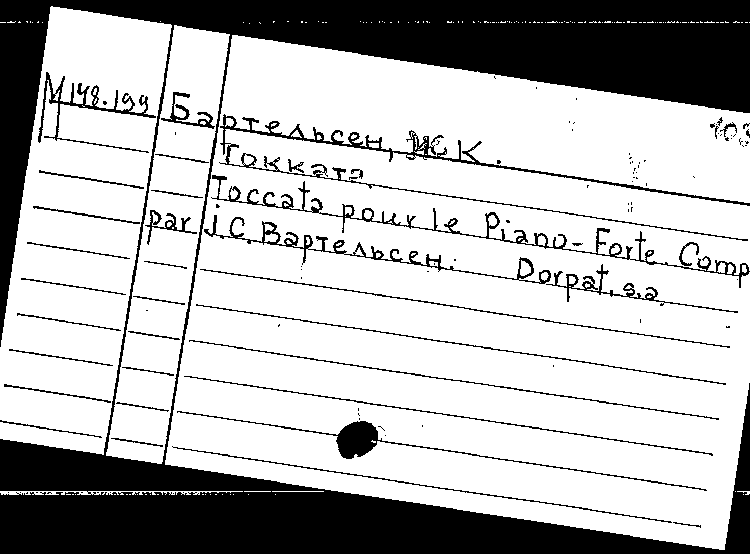 М 148.199 Бартельсен, К. 103
Токката.
Toccata pour le Piano-Forte. Comp
par J.C. Вартельсен. Dorpat, s.a.